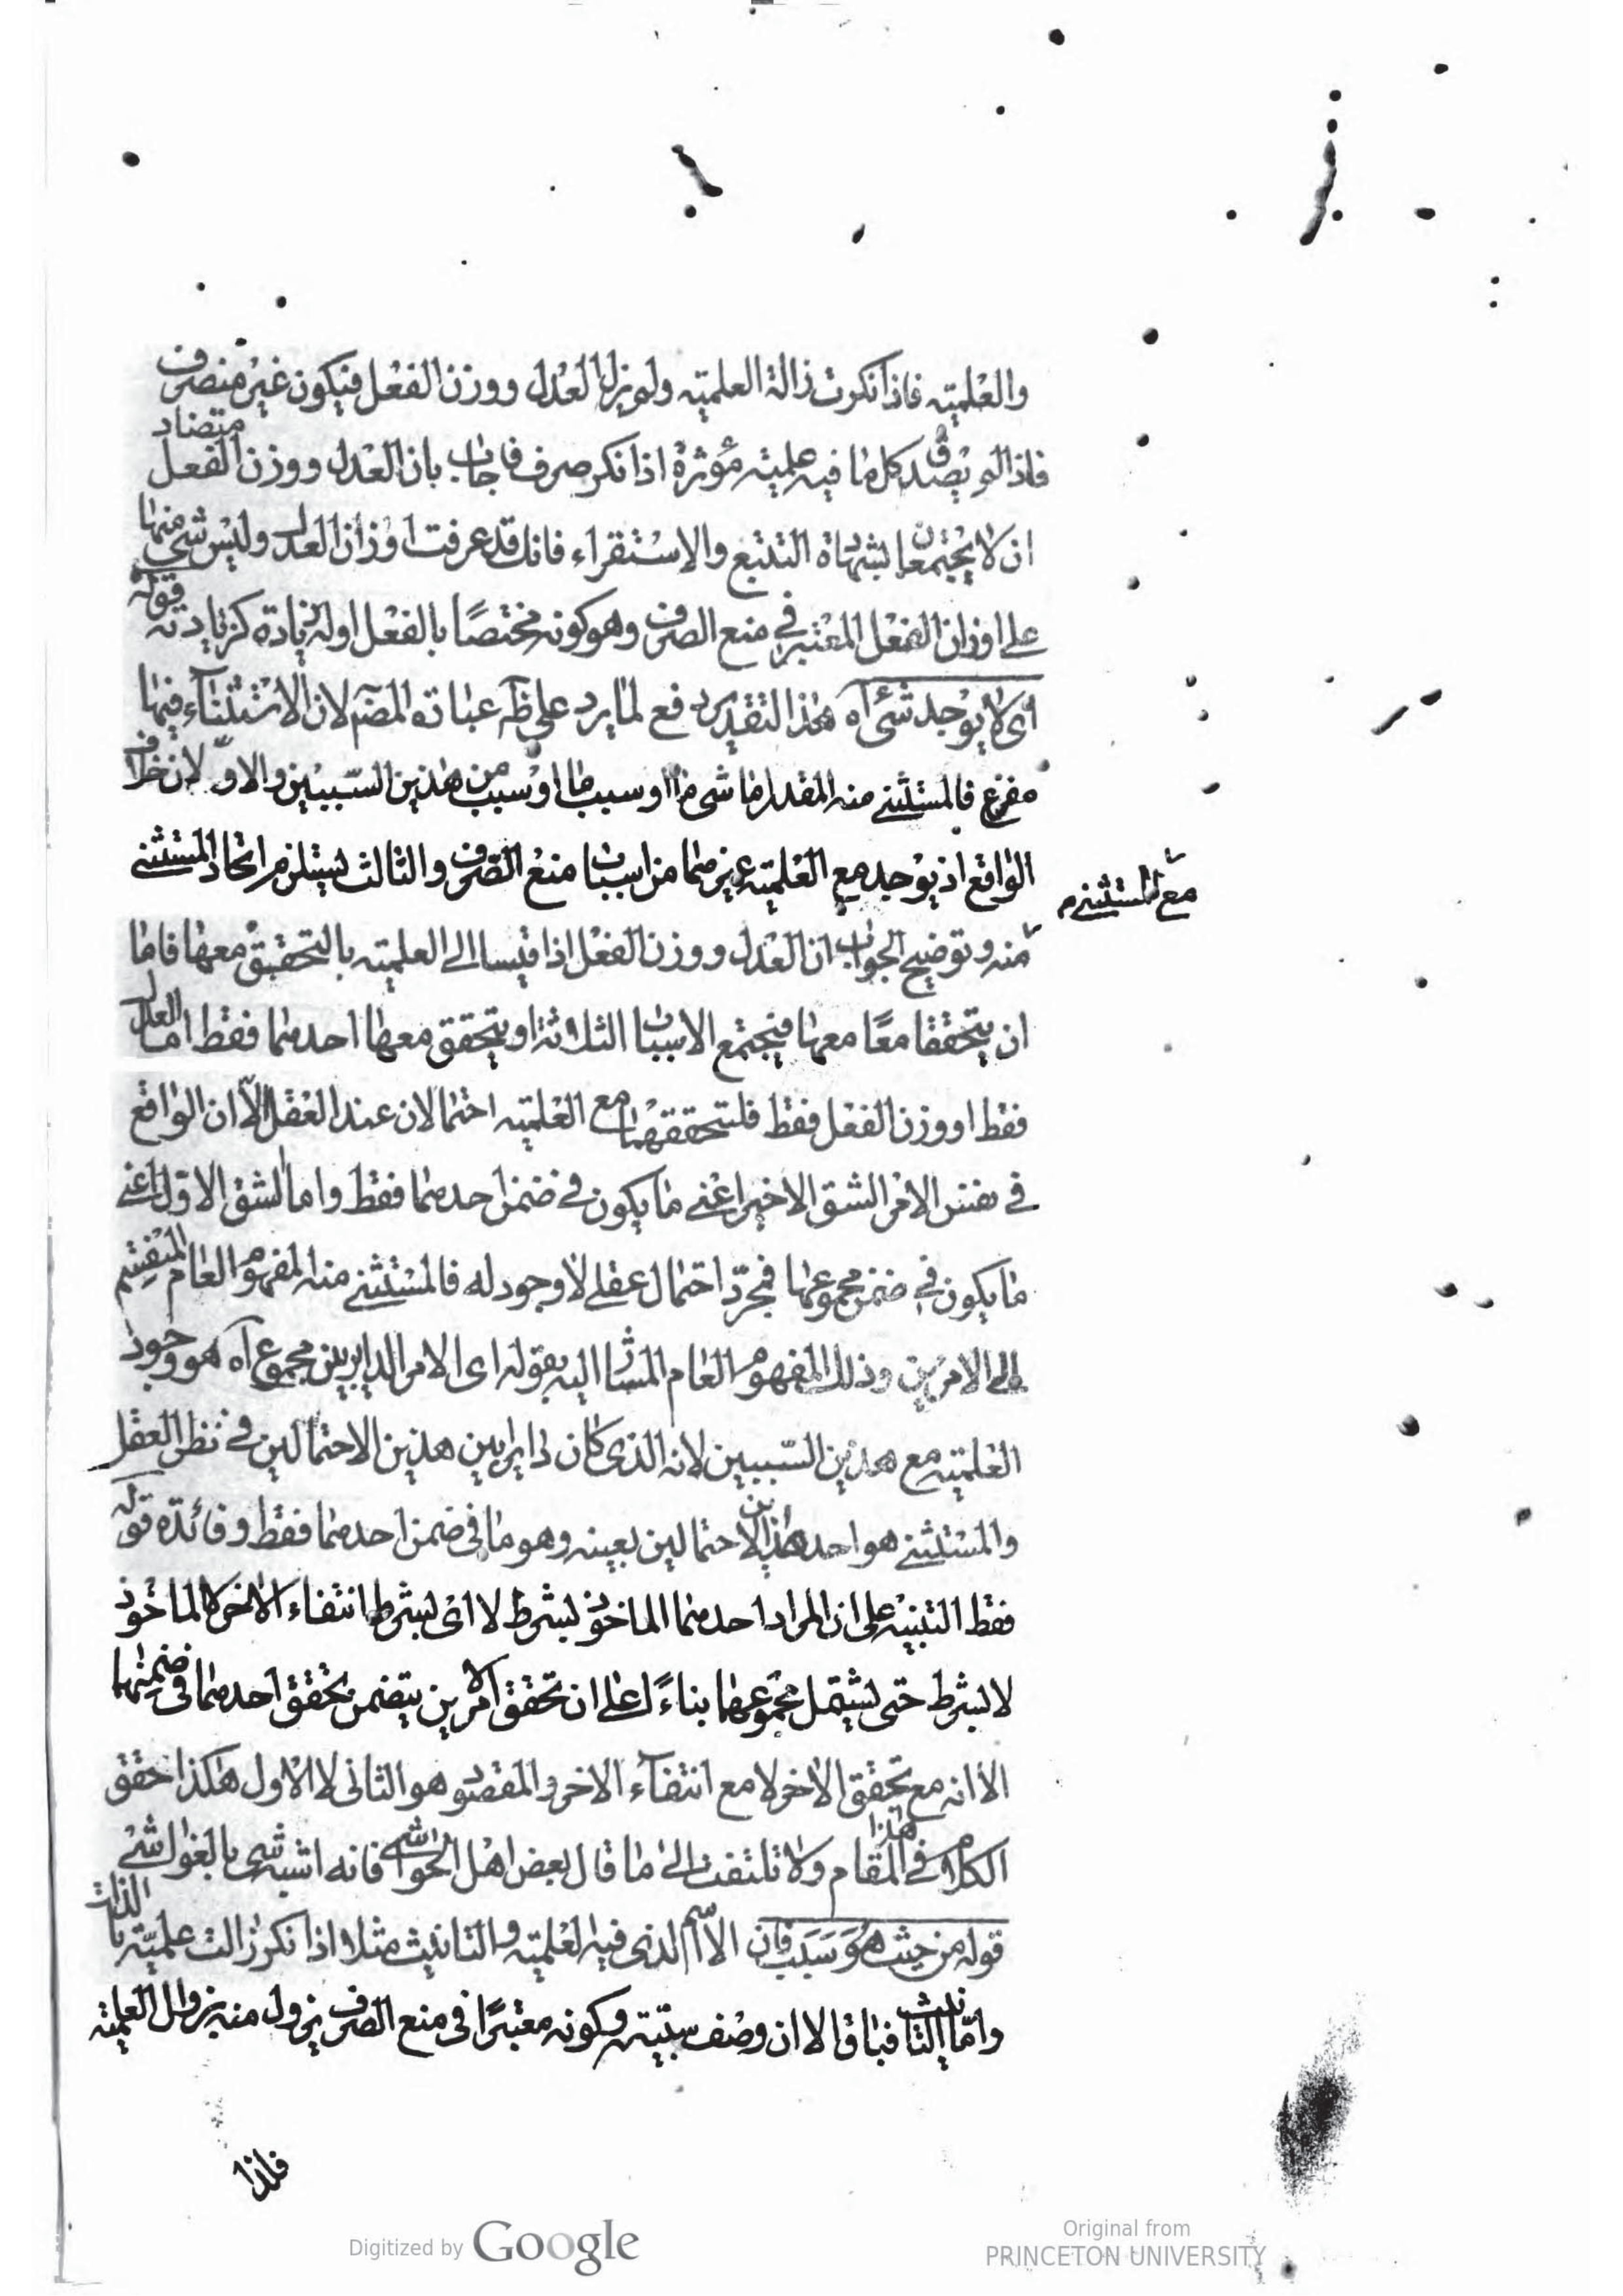 والعلمية فاذا نكرت زالة العلمية ولو يزل العدل ووزن الفعل فيكون غير منصرف
فاذا لم يصدق كل ما فيه علمية مؤثرة اذا نكر صرف فاجاب بان العدل ووزن الفعل متضاد
ان لا يجتمعان بشهادة التتبع والاستقراء فانك قد عرفت اوزان العدل وليس شئ منها
على اوزان الفعل المعتبر في منع الصرف وهو كونه مختصا بالفعل او له زيادة كزيادته قوله
اى لا يوجد شئ آه هذا التقدير دفع لما يرد على ظه عبارة المصم لان الاستثناء فيها
مفرغ فالمستثنى منه المقدر اما شئ ما او سبب ما او سبب من هذين السببين والاو لان خلاف
الواقع اذ يوجد مع العلمية غيرهما من اسباب منع الصرف والثالث يستلزم اتحاد المستثنى
مع المستثنى م
منه وتوضيح الجواب ان العدل ووزن الفعل اذا قيسا الى العلمية بالتحقيق معها فاما
ان يتحققا معا معها فيجتمع الاسباب الثلاثة او يتحقق معها احدهما فقط اما العدل
فقط او وزن الفعل فقط فلتحققهما مع العلمية احتمالان عند العقل الا ان الواقع
في نفس الامر الشق الاخير اعنى ما يكون في ضمن احدهما فقط واما الشق الاول اعنى
ما يكون في ضمن مجموعهما فمجرد احتمال عقلى لا وجود له فالمستثنى منه المفهوم العام المنقسم
الى الامرين وذلك المفهوم العام المشار اليه بقوله اى الامر الداير بين مجموع آه هو وجود
العلمية مع هذين السببين لانه الذى كان دايرا بين هذين الاحتمالين في نظر العقل
والمستثنى هو احد هذين الاحتمالين بعينه وهو ما فى ضمن احدهما فقط وفائدة قوله
فقط التنبيه على ان المراد احدهما الماخوذ بشرط لا اى بشرط انتفاء الاخر لا الماخوذ
لا بشرط حتى يشتمل مجموعهما بناء على ان تحقق الامرين يتضمن تحقق احدهما فى ضمنهما
الا انه مع تحقق الاخر لا مع انتفآء الاخر والمقصود هو الثانى لا الاول هكذا حقق
الكلام في هذا المقام ولا تلتفت الى ما قال بعض اهل الحواشى فانه اشبه شى بالغوا شى
قوله من حيث هو سبب فان الاسم الذى فيه العلمية والتانيث مثلا اذا نكر زالت علميته بالذات
واما التانيث فباق الا ان وصف سببيته وكونه معتبرا فى منع الصرف يزول منه بزوال العلمية
فلذا
Digitized by Google
Original from
PRINCETON UNIVERSITY